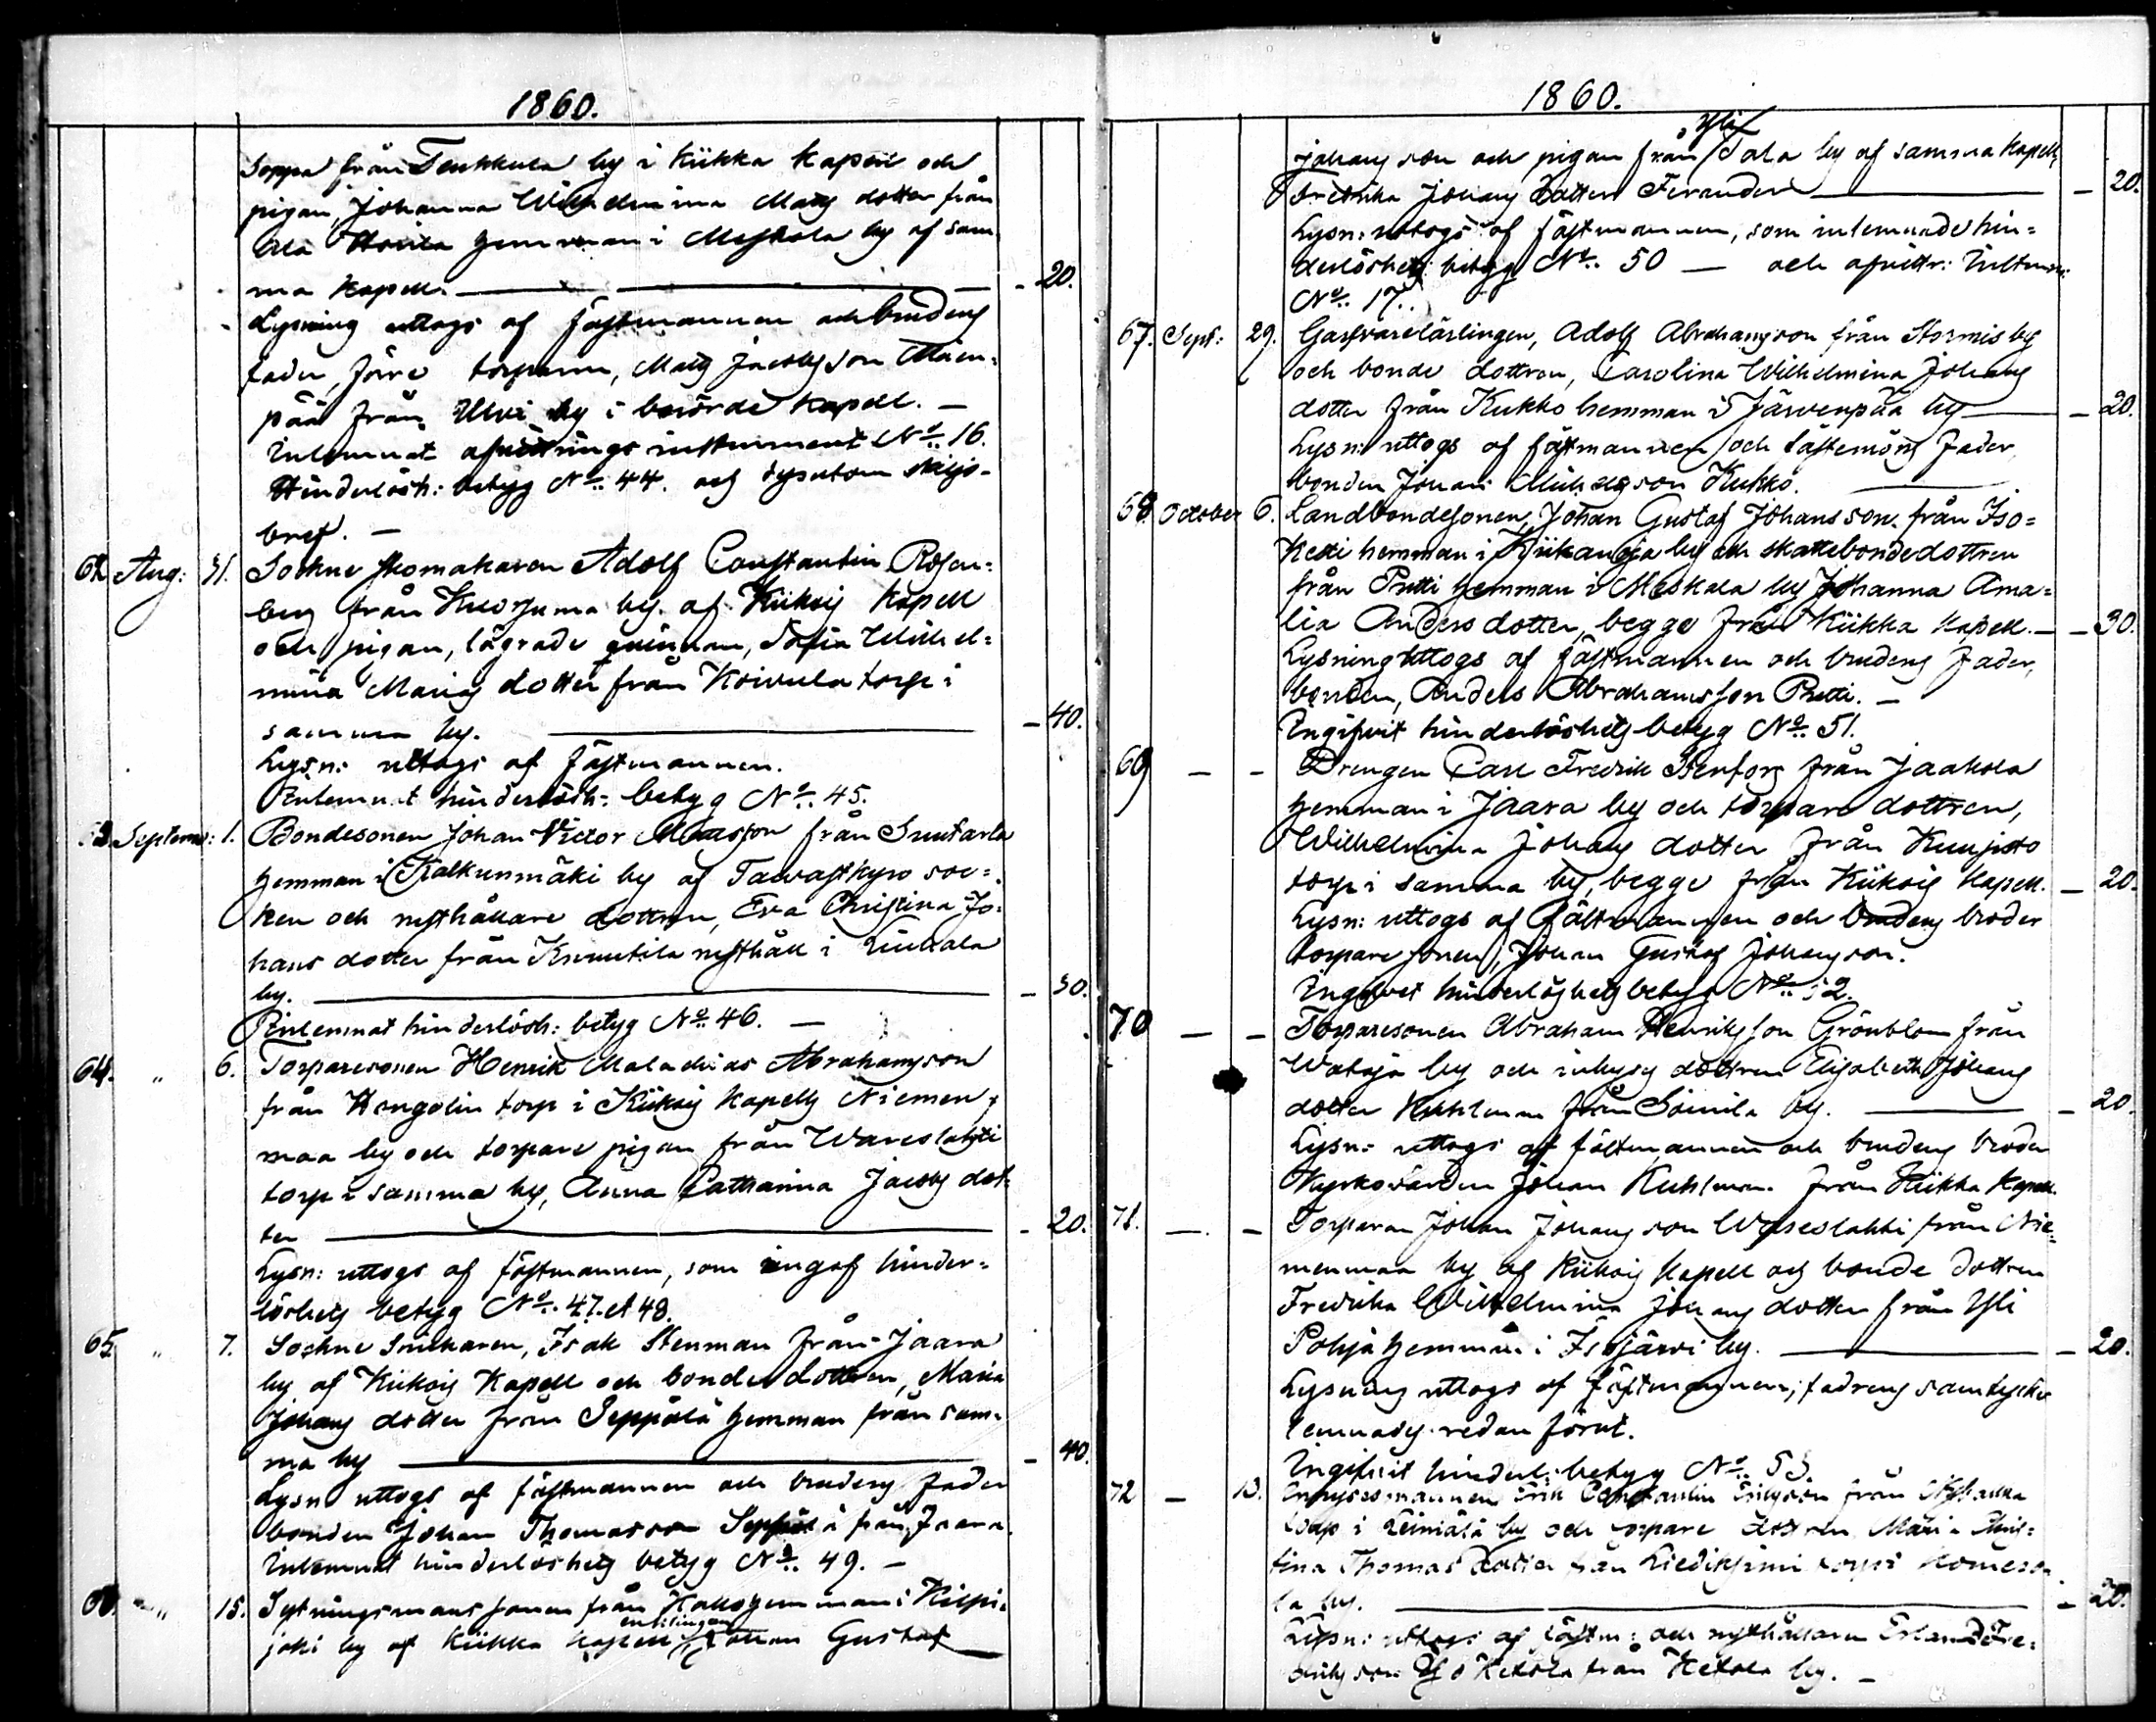 1860.
Soppa från Tenkkula by i Kiikka Kapell och
pigan, Johanna Wilhelmina Mats dotter från
Ala hemman i Meskala by af sam
ma Kapell. — 20.
Lysning uttogs af fästmannen och brudens
fader, förre torparen, Mats Jacobsson Mäen=
pää från Ulvi by i berörde Kapell. —
Inlemnat afvittrings instrument No. 16.
Hinderlösh: betyg No. 44. och dysutom skiljo-
bref. —
62. Aug: 31. Sockne skomakaren Adolf Constantin Rosen=
berg från Kuorsuma by. af Kiikois Kapell
och pigan, lägrade qvinnan, Sofia Wilhel=
mina Marias dotter från Koivula torp i
samma by. — 40.
Lysn: uttogs af fästmannen.
Inlemnat hinderlösh: betyg No. 45.
63. Septemb: 1. Bondesonen Johan Victor Mattsson från Suutarla
hemman i Kalkunmäki by af Tawastkyro soc=
ken och rusthållare dottren, Eva Christina Jo=
hans dotter från Knuutila rusthåll i Liuhala
by. — 30.
Inlemnat hinderlösh: betyg No. 46. —
64. " 6. Torparesonen Henrik Malachias Abrahamsson
från Hongolin torp i Kiikois Kapells Niemen=
maa by och torpare pigan från Wareslahti
torp i samma by, Anna Catharina Jacobs dot=
ter — 20.
Lysn: uttogs af fästmannen, som ingaf hinder=
löshets betyg No. 47. et 48.
65. " 7. Sockne snickaren, Isak Stenman från Jaara
by af Kiikois Kapell och bonde dottren, Maria
Johans dotter från Seppälä hemman från sam=
ma by — 40.
Lysn: uttogs af fästmannen och brudens fader
bonden Johan Thomasson Seppälä från Jaara.
Inlemnat hinderlöshets betyg No. 49. —
66. " 15. Sytningsmans sonen från hemman i Kilpi=
joki by af Kiikka Kapell enklingen Gustaf
1860.
Johansson och pigan från Yli Sala by af samma Kapell,
Fredrika Johans dotter Ferander — 20.
Lysn: uttogs af fästmannen, som inlemnade hin=
derlöshets betyg No. 50 — och afvittr: Instrum:
No. 17.
67. Sept: 29. Garfvarelärlingen, Adolf Abrahamsson från Stormis by
och bonde dottren, Carolina Wilhelmina Johans
dotter från Kukko hemman i Järvenpää by — 20.
Lysn: uttogs af fästmannen och fästemöns fader,
bonden Johan Michelsson Kukko.
68. October 6. Landbondesonen, Johan Gustaf Johansson från Iso=
Ketti hemman i Kiikanoja by och skattebondedottren
från Pretti hemman i Meskala by Johanna Ama=
lia Anders dotter, begge från Kiikka Kapell. — 30.
Lysning uttogs af fästmannen och brudens fader,
bonden, Anders Abrahamsson Pretti. —
Ingifvit hinderlöshets betyg No. 51.
69 — — Drengen Carl Fredrik Stenfors från Jaakola
hemman i Jaara by och torpare dottren,
Wilhelmina Johans dotter från Kuujisto
torp i samma by, begge från Kiikois Kapell. — 20.
Lysn: uttogs af fästmannen och brudens broder
torpare sonen, Johan Gustaf Johansson.
Ingifvet hinderlöshets betyg No. 52.
70 — — Torparesonen Abraham Henriksson Grönblom från
Wataja by och inhyses dottren Elisabeth Johans
dotter Kuhlman från Soinila by. — 20.
Lysn: uttogs af fästmannen och brudens broder
Kyrkovärden Johan Kuhlman från Kiikka Kapell.
71. — — Torparen Johan Johansson Wareslahti från Nie=
menmaa by af Kiikois Kapell och bonde dottren
Fredrika Wilhelmina Johans dotter från Yli
Pohja hemman i Isojärvi by. — 20.
Lysning uttogs af fästmannen; fadrens samtycke
lemnades redan förut.
Ingifvit hinderl: betyg No. 53
72 — 13. Inhysesmannen Erik Constantin Eriksson från
torp i Leiniälä by och torpare dottren Maria Chris=
tina Thomas dotter från torp i
la by. — 20.
Lysn: uttogs af fästm: och rusthållaren Erland Fre=
driksson Ketola från Ketola by. —